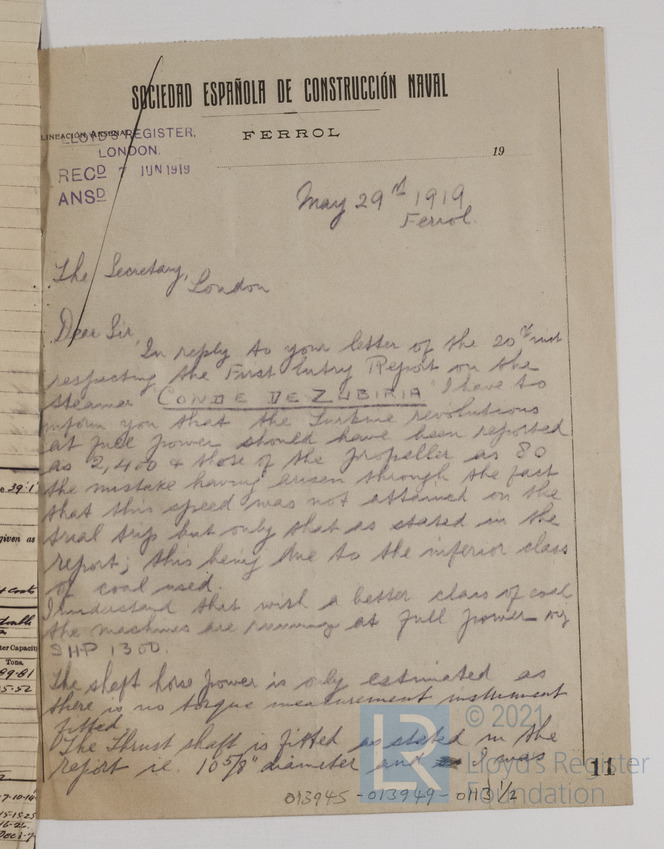 SOCIEDAD ESPAÑOLA DE CONSTRUCCIÓN NAVAL
FERROL
LLOYD'S REGISTER,
LONDON.
RECD 7 JUN 1919
ANSD
19
May 29th 1919
Ferrol.
The Secretary,
London
Dear Sir,
In reply to your letter of the 20th inst
respecting the First Entry Report on the
steamer "CONDE DE ZUBIRIA" I have to
inform you that the turbine revolutions
at full power should have been reported
as 2,400 & those of the propeller as 80
the mistake having arisen through the fact
that this speed was not attained on the
trial trip but only that as stated in the
report; this being due to the inferior class
of coal used.
I understand that with a better class of coal
the machines are running at full power
SHP 1300.
The shaft horse power is only estimated as
there is no torque measurement instrument
fitted.
The Thrust shaft is fitted as stated in the
report ie. 10 5/8" diameter and I was
11
013945-013949-0113 1/2
© 2021
Lloyd's Register
Foundation
LR